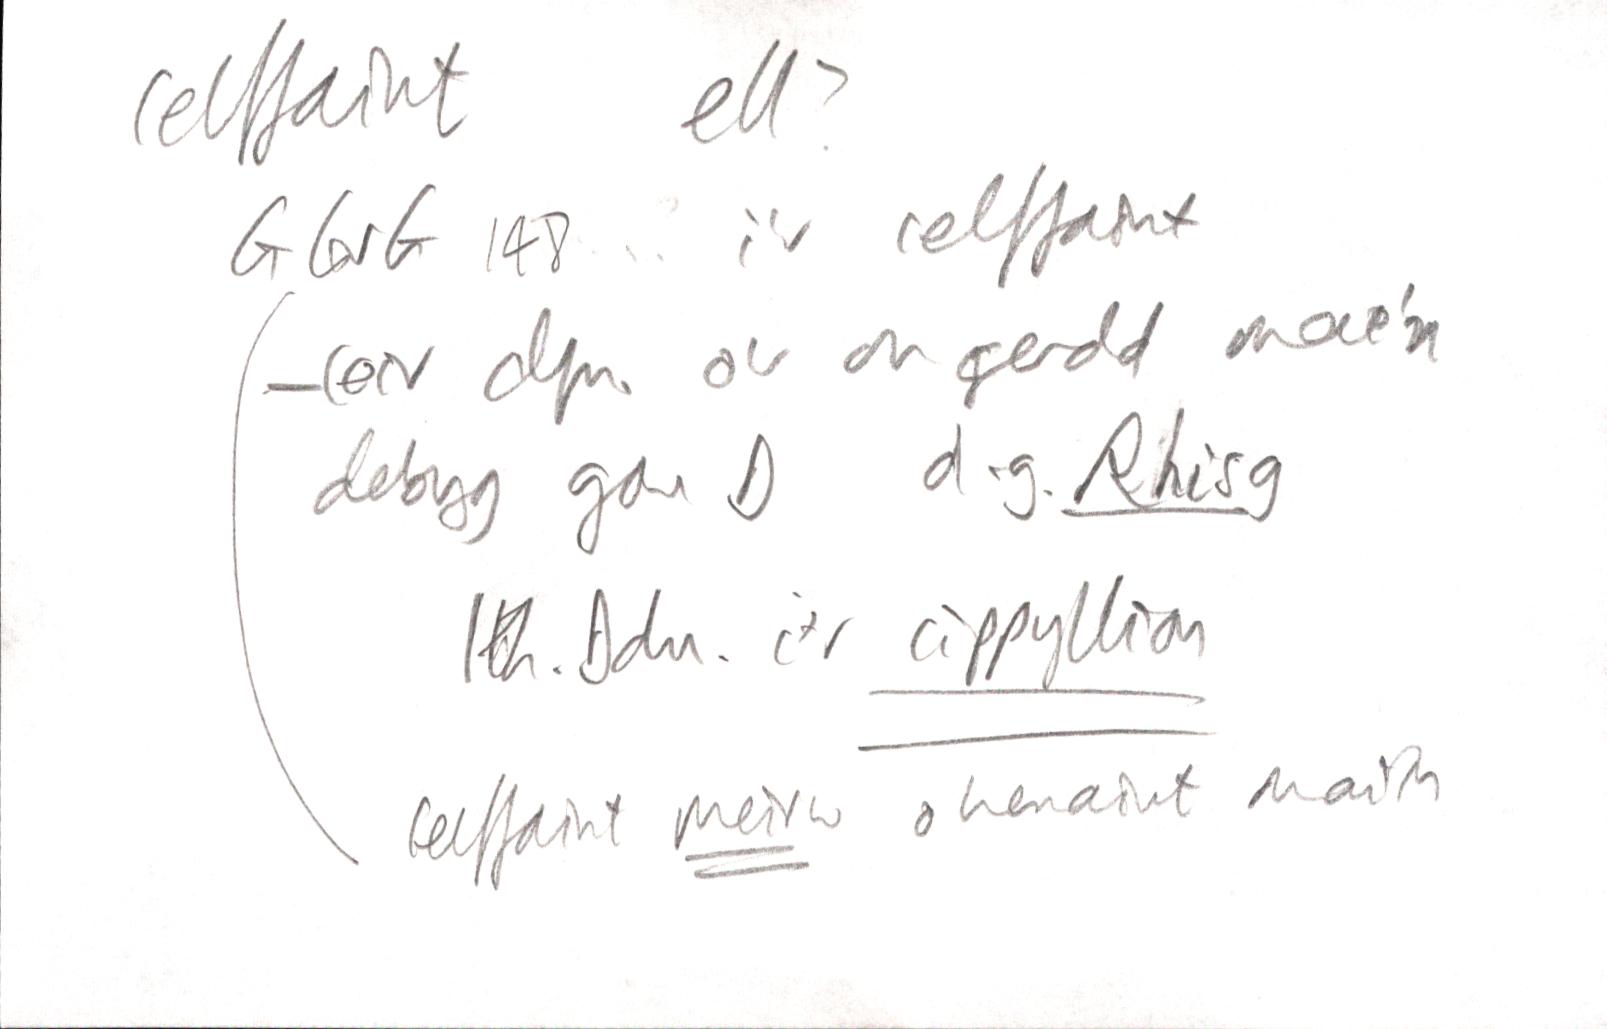 celffaint ell?
G GrG 148 ... i'r celffaint
– ceir dfn. o'r un gerdd mae'n
debyg gan D d.g. Rhisg
Ith. Ddu. i'r cippyllion
celffaint meirw o henaint maith